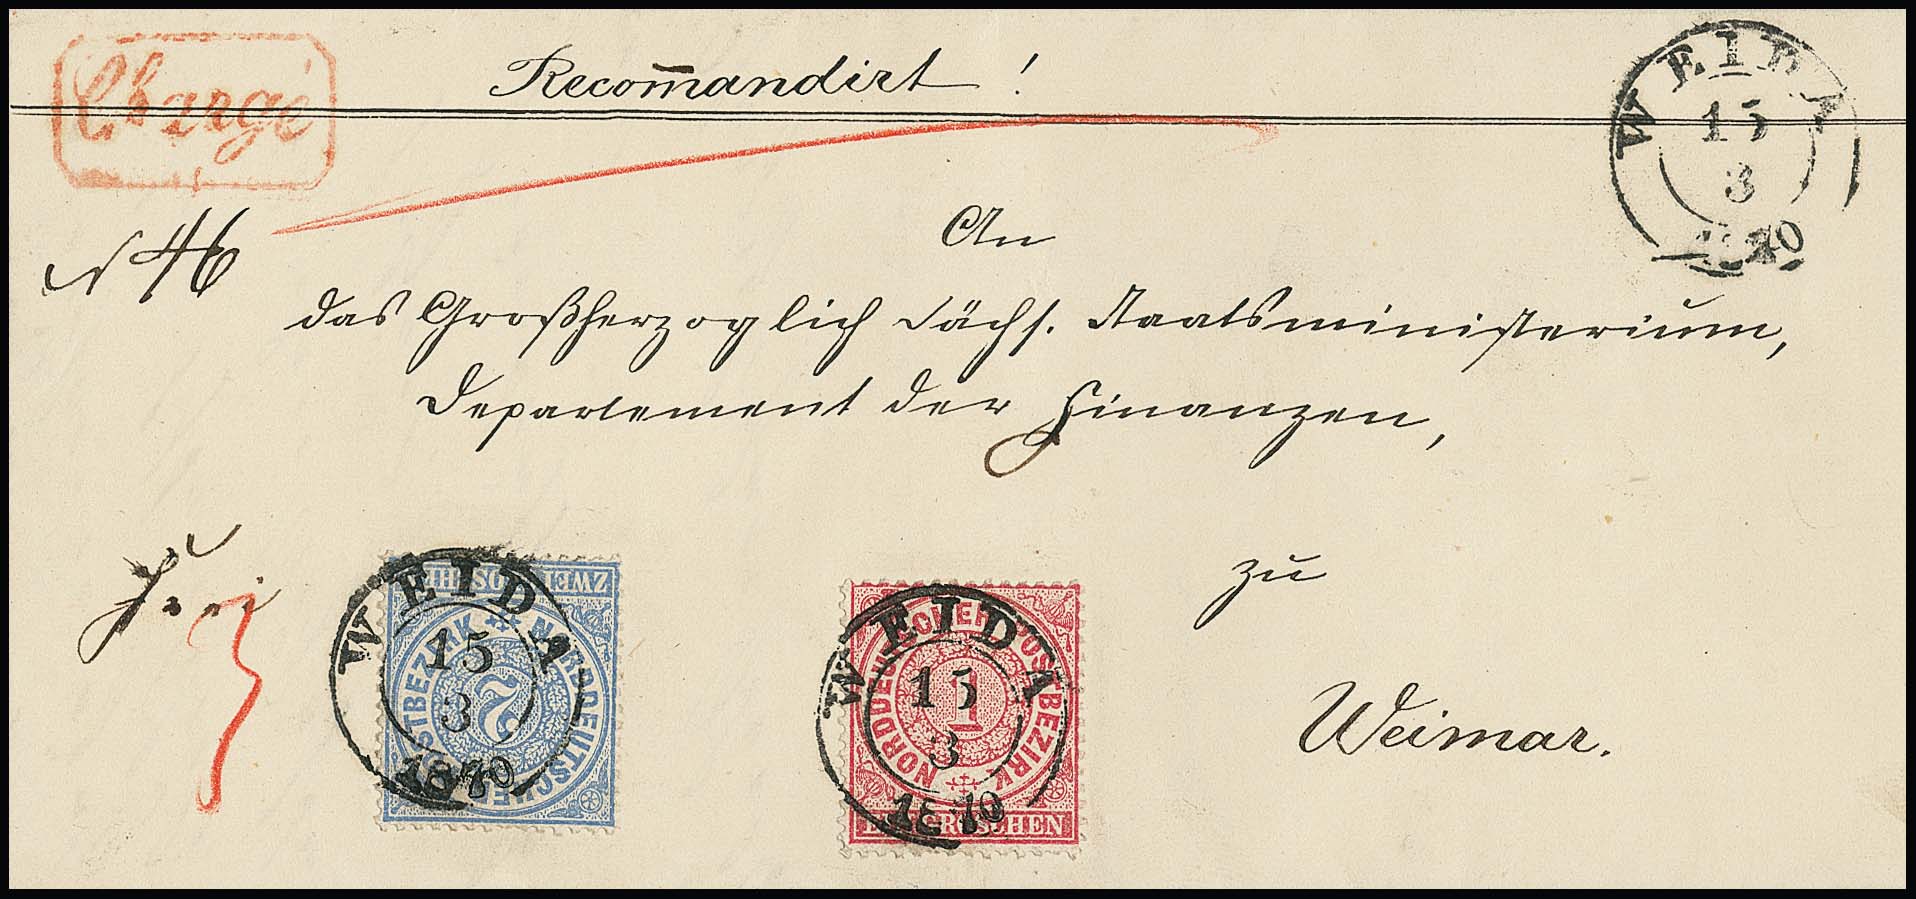 Recom̅andirt!
Chargé
WEIDA
15
3
1870
N 46
An
das Großherzoglich Sächs. Staatsministerium,
Departement der Finanzen,
zu
Weimar.
Frei
3
ZWEI GROSCHEN
NORDDEUTSCHER POSTBEZIRK
2
WEIDA
15
3
1870
NORDDEUTSCHER POSTBEZIRK
1
EIN GROSCHEN
WEIDA
15
3
1870